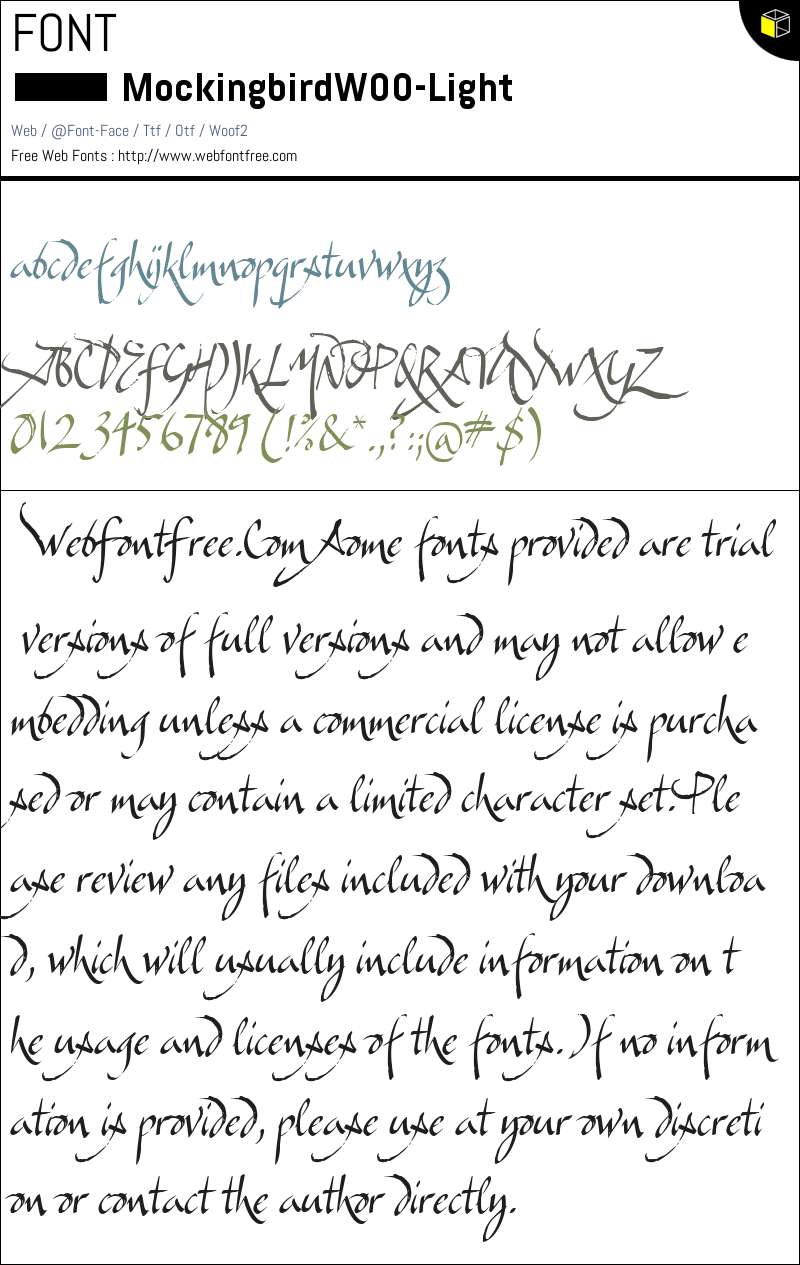 FONT
MockingbirdW00-Light
Web / @Font-Face / Ttf / Otf / Woof2
Free Web Fonts : http://www.webfontfree.com
abcdefghijklmnopqrstuvwxyz
ABCDEFGHIJKLMNOPQRSTUVWXYZ
0123456789 (!%&*.,?:;@#$)
Webfontfree.Com Some fonts provided are trial
versions of full versions and may not allow e
mbedding unless a commercial license is purcha
sed or may contain a limited character set.Ple
ase review any files included with your downloa
d, which will usually include information on t
he usage and licenses of the fonts. If no inform
ation is provided, please use at your own discreti
on or contact the author directly.